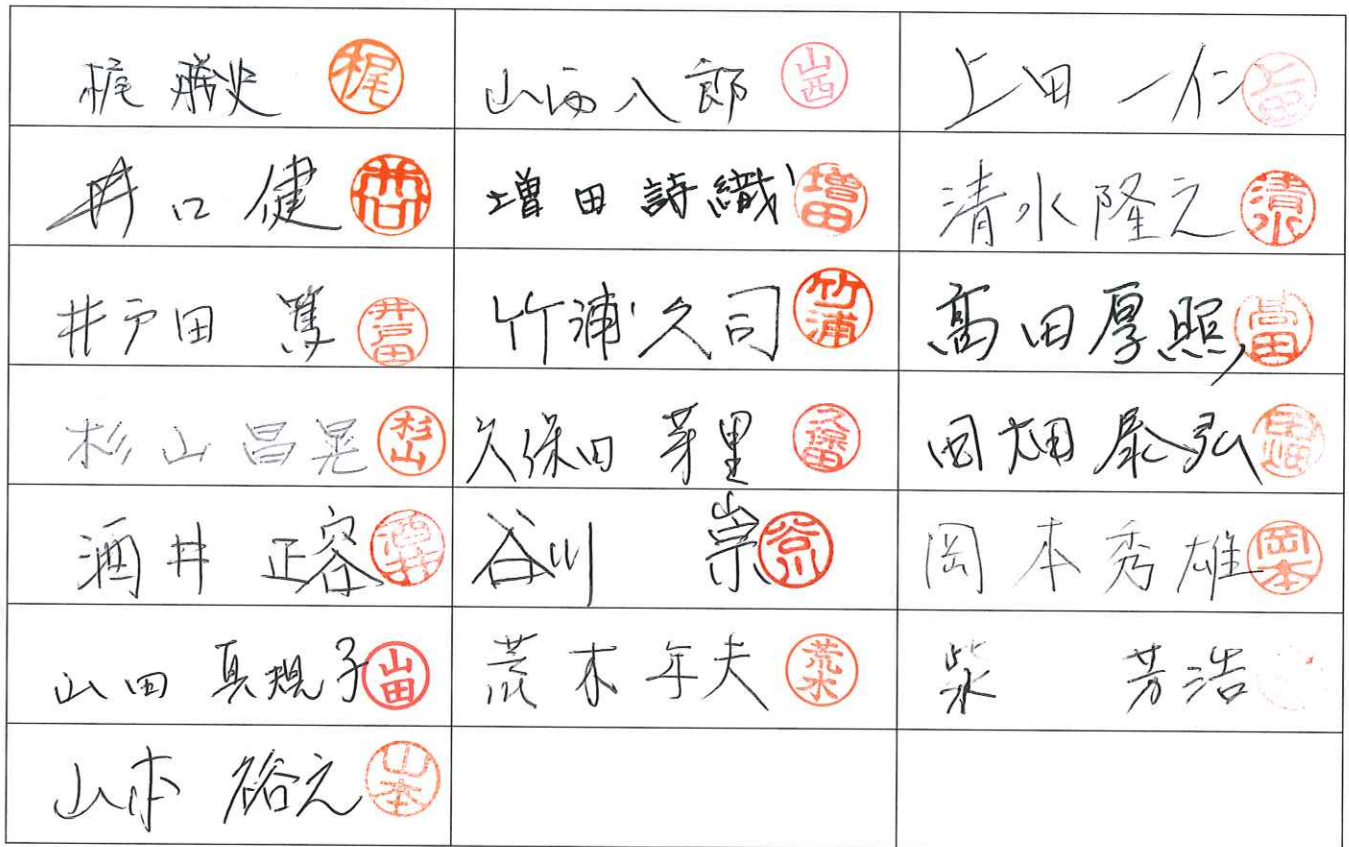 梶 勝史 梶 山西八郎 山西 上田 一仁 上田
井口 健 井口 増田詩織 増田 清水隆之 清水
井戸田 篤 井戸田 竹浦久司 竹浦 髙田厚照 髙田
杉山昌晃 杉山 久保田 芽里 久保田 田畑泰弘 田畑
酒井 正容 酒井 谷川 崇 谷川 岡本秀雄 岡本
山田 真規子 山田 荒木年夫 荒木 柴 芳浩
山本 裕之 山本